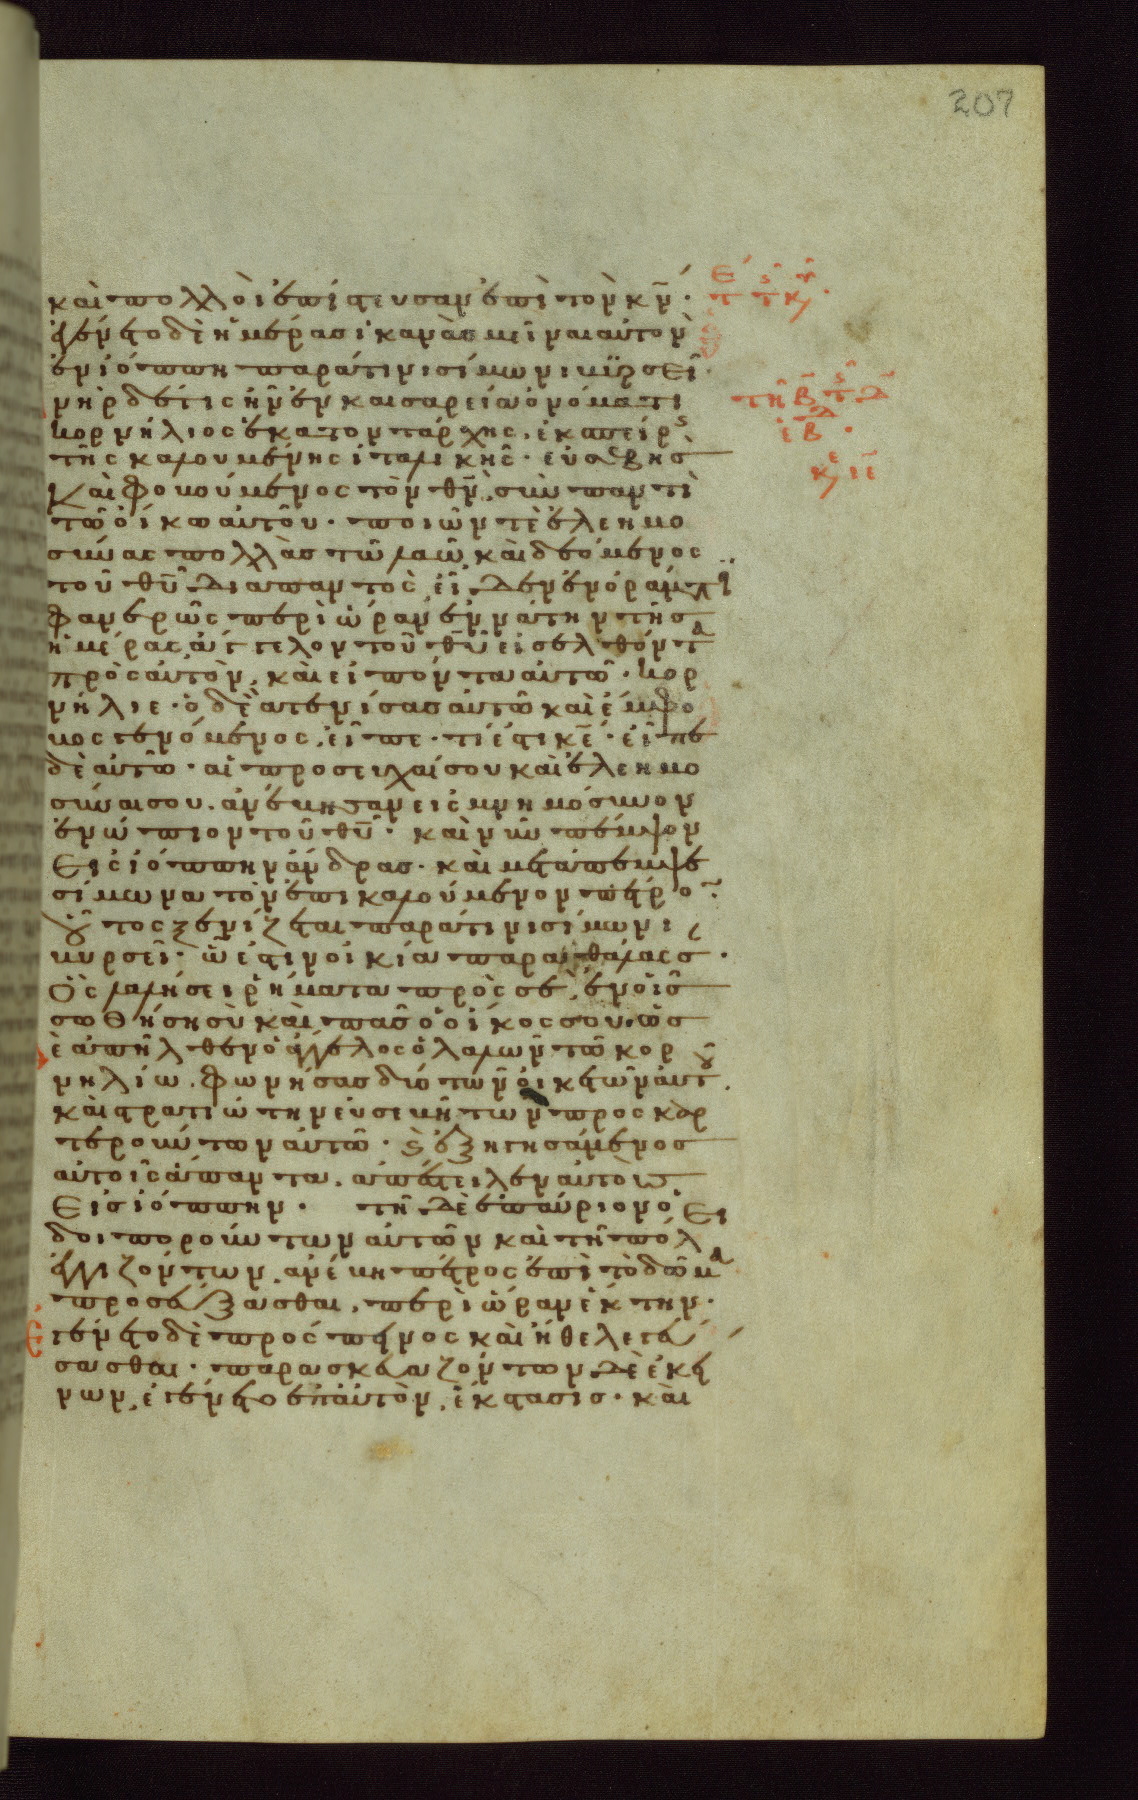 207
καὶ πολλοὶ ἐπίστευσαν ἐπὶ τὸν κν̄.
ἐγένετο δὲ ἡμέρας ἱκανὰς μεῖναι αὐτὸν
ἐν ἰόππη παρά τινι σίμωνι βυρσεῖ.
νὴρ δέ τις ἦν ἐν καισαρεία ὀνόματι
κορνήλιος ἑκατοντάρχης. ἐκ σπείρς
τῆς καλουμένης ἰταλικῆς. εὐσεβὴς
καὶ φοβούμενος τὸν θν̄, σὺν παντὶ
τῶ οἴκω αὐτοῦ. ποιῶν τὲ ἐλεημο
σύνας πολλὰς τῶ λαῶ καὶ δεόμενος
τοῦ θῡ διαπαντὸς, εἶδεν ἐν ὁράματι
φανερῶς περὶ ὥραν ἐννάτην τῆς
ἡμέρας ἄγγελον τοῦ θῡ εἰσελθόντα
πρὸς αὐτὸν, καὶ εἰπόντα αὐτῶ. κορ
νήλιε. ὁ δὲ ἀτενίσας αὐτῶ καὶ ἔμφο
βος γενόμενος, εἶπε. τί ἐστι κε̄. εἶπε
δὲ αὐτῶ. αἱ προσευχαί σου καὶ ἐλεημο
σύναι σου. ἀνέβησαν εἰς μνημόσυνον
ἐνώπιον τοῦ θῡ. καὶ νῦν πέμψον
εἰς ἰόππην ἄνδρας. καὶ μετάπεμψε
σίμωνα τὸν ἐπικαλούμενον πέτρον.
οὗτος ξενίζεται παρά τινι σίμωνι
βυρσεῖ. ὧ ἐστιν οἰκία παρα θάλασς.
ὃς λαλήσει ῥήματα πρὸς σὲ, ἐν οἷς
σωθήση σὺ καὶ πᾶς ὁ οἶκος σου. ὡς
ἐ ἀπῆλθεν ὁ ἄγγελος ὁ λαλῶν τῶ κορ
νηλίω. φωνήσας δύο τῶν οἰκετῶν αὐτοῦ.
καὶ στρατιώτην εὐσεβῆ τῶν προσκαρ
τερούντων αὐτῶ. καὶ ἐξηγησάμενος
αὐτοῖς ἅπαντα. ἀπέστειλεν αὐτοὺς
εἰς ἰόππην. τῆ δὲ ἐπαύριον ὁ
δοιπορούντων αὐτῶν καὶ τῆ πόλ
ἐγγιζόντων, ἀνέβη πέτρος ἐπὶ τὸ δῶμα
προσεύξασθαι. περὶ ὥραν ἕκτην.
ἐγένετο δὲ πρόσπεινος καὶ ἤθελε γεύ
σασθαι. παρασκευαζόντων δὲ ἐκεί
νων, ἐγένετο ἐπ' αὐτὸν, ἔκστασις. καὶ